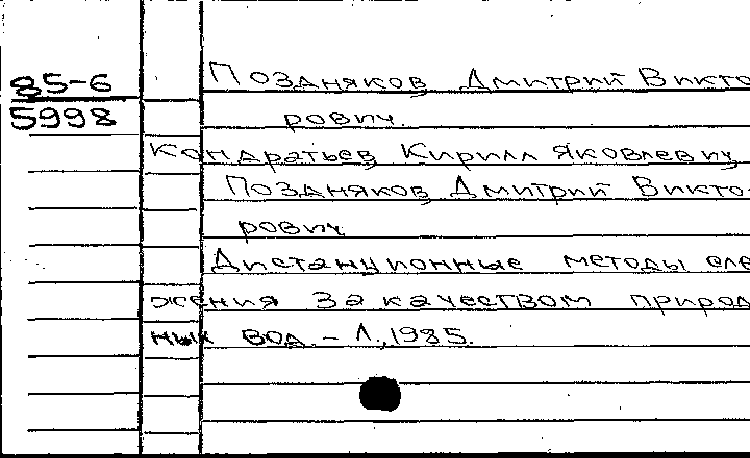 85-6
5998
Поздняков Дмитрий Викто
рович.
Кондратьев Кирилл Яковлевич
Поздняков Дмитрий Викто-
рович
Дистанционные методы сле
жения за качеством природ
ных вод. - Л., 1985.